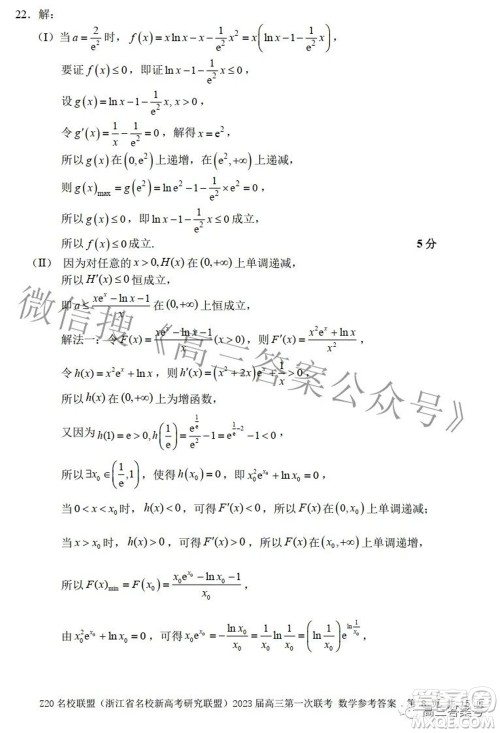 22. 解：
(I) 当 a = 2/e² 时， f(x) = x ln x − x − (1/e²)x² = x(ln x − 1 − (1/e²)x)，
要证 f(x) ≤ 0，即证 ln x − 1 − (1/e²)x ≤ 0，
设 g(x) = ln x − 1 − (1/e²)x, x > 0，
令 g′(x) = 1/x − 1/e² = 0，解得 x = e²，
所以 g(x) 在 (0, e²) 上递增，在 (e², +∞) 上递减，
则 g(x)max = g(e²) = ln e² − 1 − (1/e²) × e² = 0，
所以 g(x) ≤ 0，即 ln x − 1 − (1/e²)x ≤ 0 成立，
所以 f(x) ≤ 0 成立. 5 分
(II) 因为对任意的 x > 0, H(x) 在 (0, +∞) 上单调递减，
所以 H′(x) ≤ 0 恒成立，
即 a ≤ (xeˣ − ln x − 1)/x 在 (0, +∞) 上恒成立，
解法一：令 F(x) = (xeˣ − ln x − 1)/x (x > 0)，则 F′(x) = (x²eˣ + ln x)/x²，
令 h(x) = x²eˣ + ln x，则 h′(x) = (x² + 2x)eˣ + 1/x > 0，
所以 h(x) 在 (0, +∞) 上为增函数，
又因为 h(1) = e > 0, h(1/e) = e^(1/e)/e² − 1 = e^(1/e − 2) − 1 < 0，
所以 ∃x₀ ∈ (1/e, 1)，使得 h(x₀) = 0，即 x₀²e^(x₀) + ln x₀ = 0，
当 0 < x < x₀ 时，h(x) < 0，可得 F′(x) < 0，所以 F(x) 在 (0, x₀) 上单调递减；
当 x > x₀ 时，h(x) > 0，可得 F′(x) > 0，所以 F(x) 在 (x₀, +∞) 上单调递增，
所以 F(x)min = F(x₀) = (x₀e^(x₀) − ln x₀ − 1)/x₀，
由 x₀²e^(x₀) + ln x₀ = 0，可得 x₀e^(x₀) = −(ln x₀)/x₀ = (1/x₀)ln(1/x₀) = (ln(1/x₀))e^(ln(1/x₀))
Z20 名校联盟（浙江省名校新高考研究联盟）2023 届高三第一次联考 数学参考答案 . 第
微信搜《高三答案公众号》
高三答案号